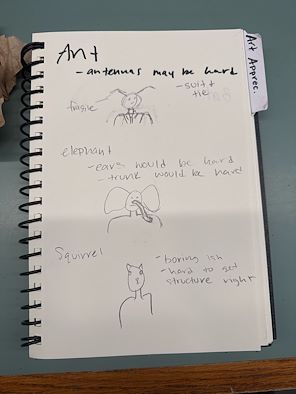 Ant
- antennas may be hard
fragile
- suit + tie
Art Apprec.
elephant
- ears would be hard
- trunk would be hard
Squirrel
- boring ish
- hard to get
structure right